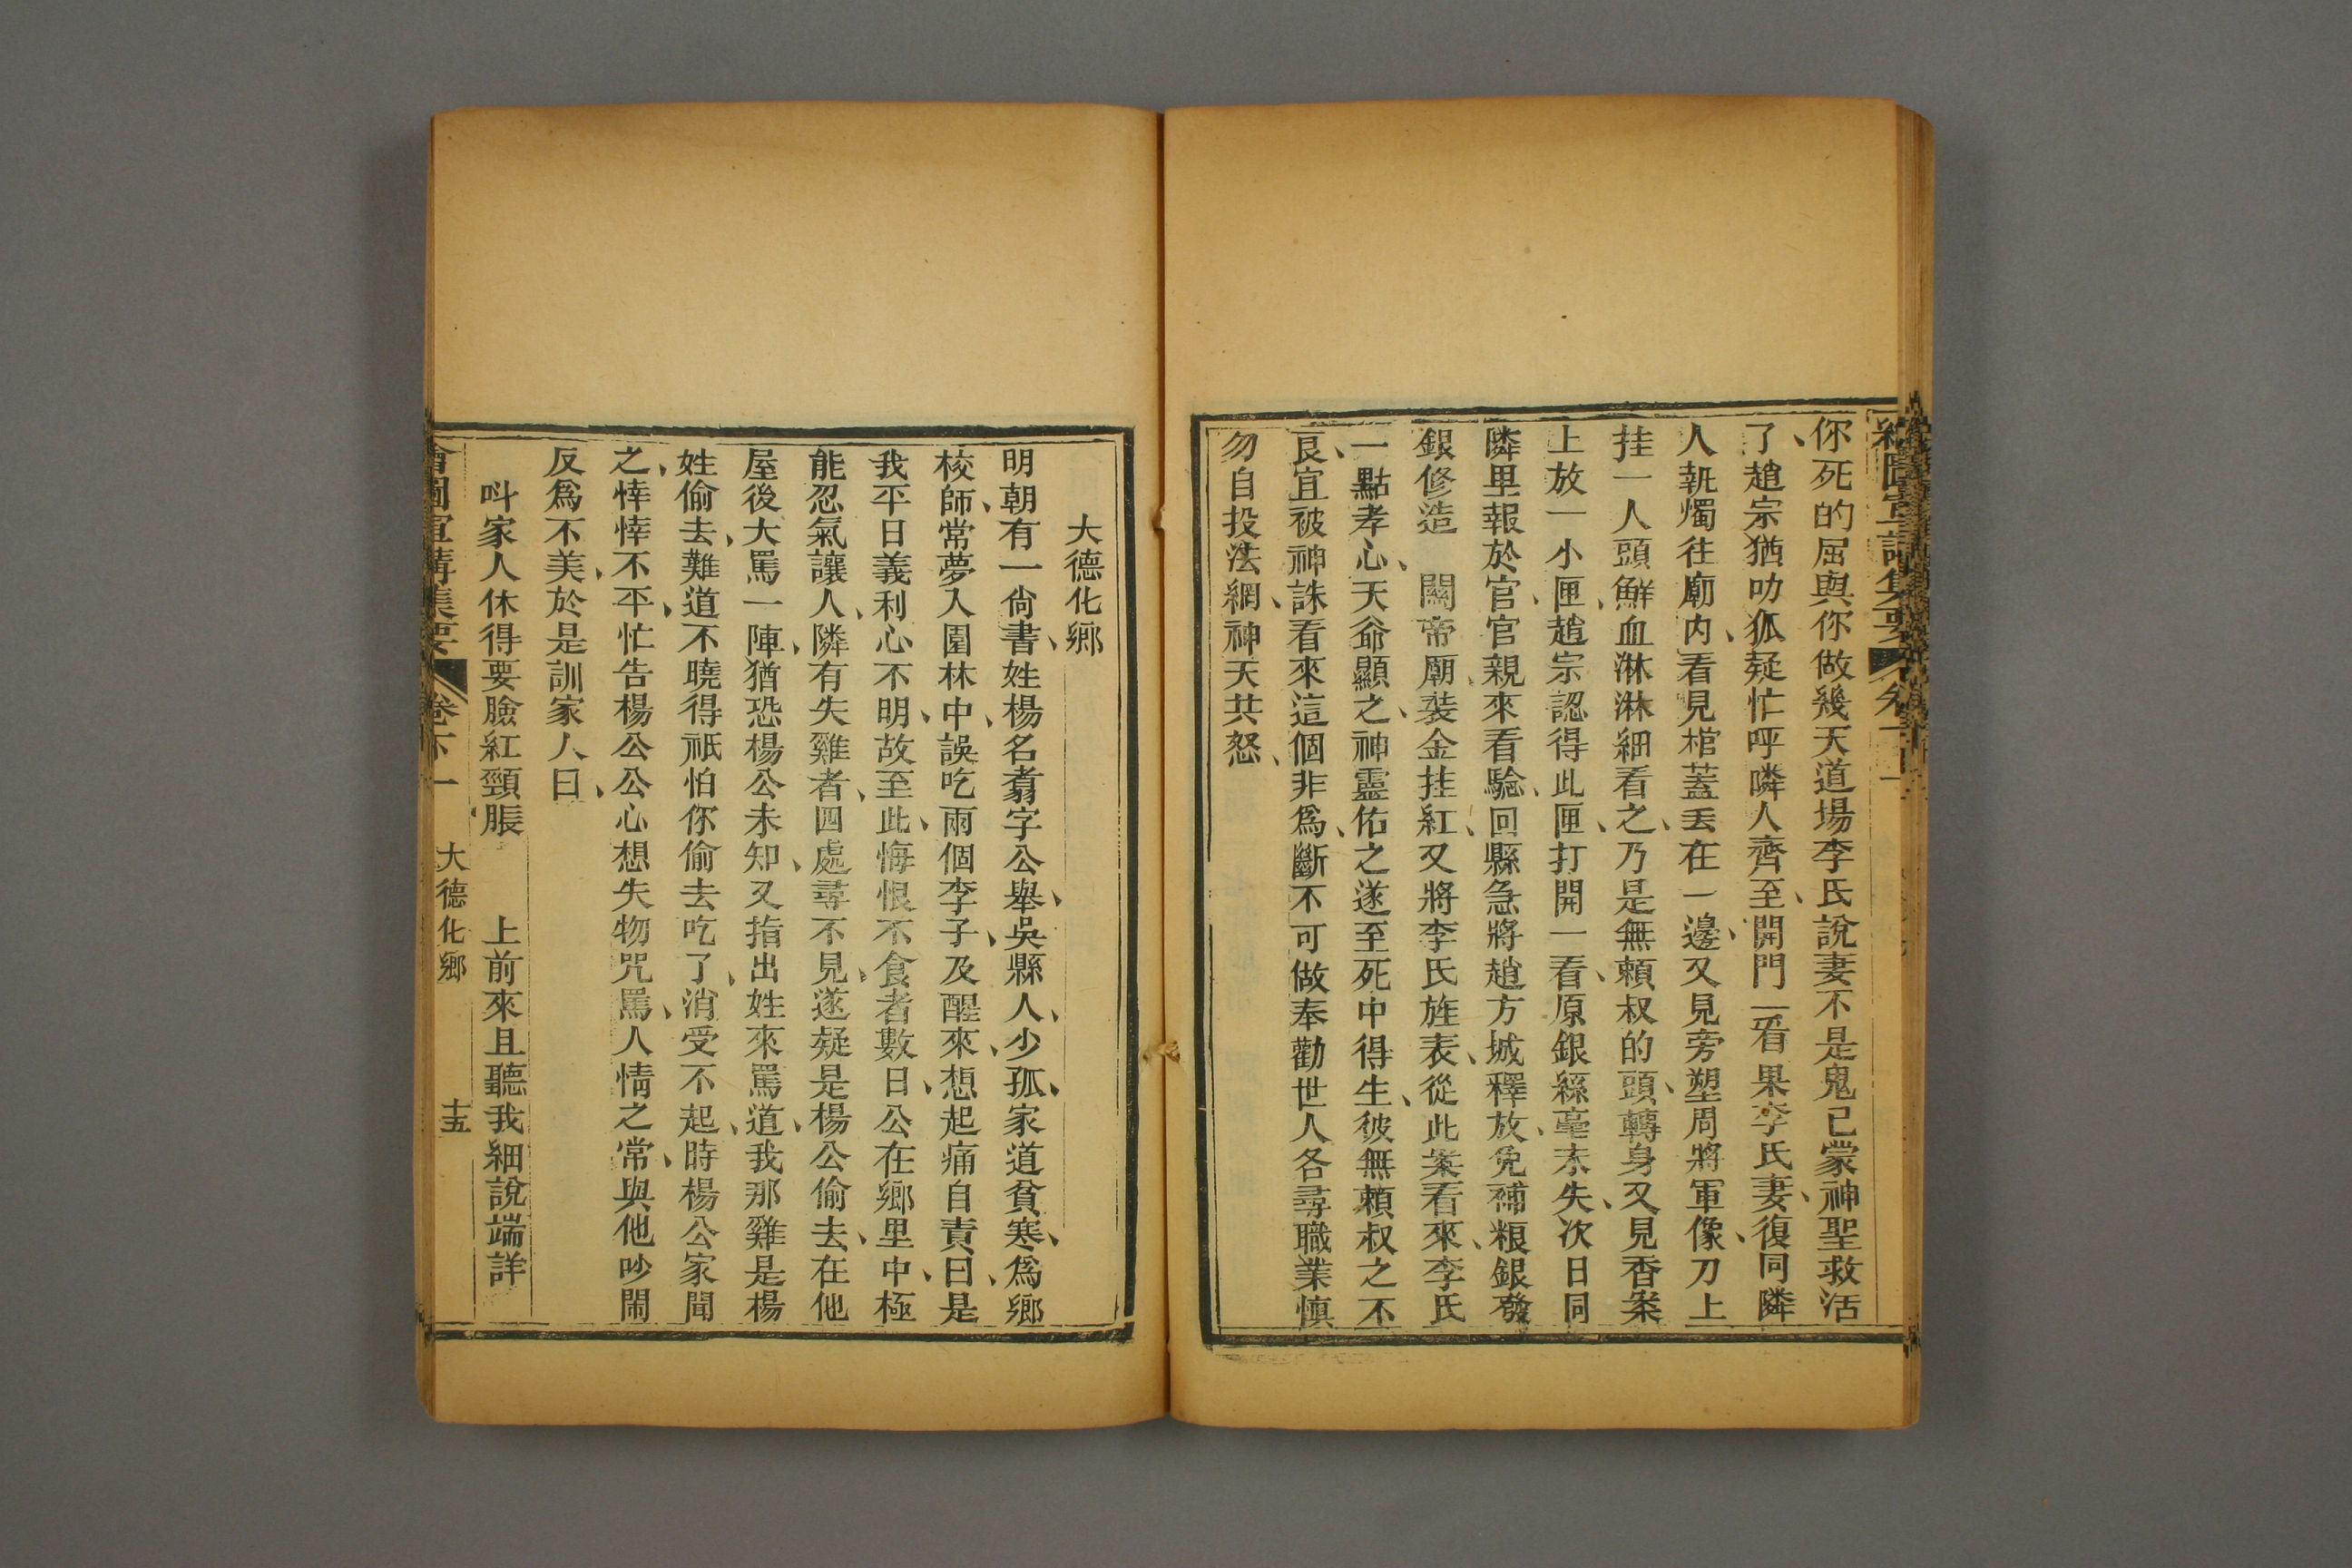 你死的屈與你做幾天道場李氏說妻不是鬼已蒙神聖救活
了、趙宗猶叻狐疑忙呼隣人齊至、開門一看果李氏妻、復同隣
人執燭往廟內、看見棺蓋丟在一邊、又見旁塑周將軍像、刀上
挂一人頭鮮血淋淋細看之、乃是無賴叔的頭、轉身又見香案
上放一小匣、趙宗認得此匣、打開一看、原銀絲毫未失、次日同
隣里報於官、官親來看驗、回縣急將趙方城釋放、免補粮銀發
銀修造 關帝廟裝金挂紅、又將李氏旌表、從此案看來、李氏
一點孝心、天爺顯之、神靈佑之遂至死中得生、彼無賴叔之不
良、宜被神誅看來這個非爲、斷不可做奉勸世人各尋職業慎
勿自投法網、神天共怒、
大德化鄉
明朝有一尙書、姓楊名翥字公舉、吳縣人、少孤、家道貧寒、爲鄉
校師、常夢入園林中、誤吃兩個李子、及醒來、想起痛自責曰、是
我平日義利心不明、故至此、悔恨不食者數日、公在鄉里中、極
能忍氣讓人、隣有失雞者、四處尋不見、遂疑是楊公偷去、在他
屋後大罵一陣、猶恐楊公未知、又指出姓來罵道、我那雞是楊
姓偷去、難道不曉得祇怕你偷去吃了、消受不起、時楊公家聞
之、悻悻不平、忙告楊公公心想失物咒罵、人情之常、與他吵鬧
反爲不美、於是訓家人曰、
叫家人休得要臉紅頸脹 上前來且聽我細說端詳
會圖宣講集要 卷下一 大德化鄉 十五